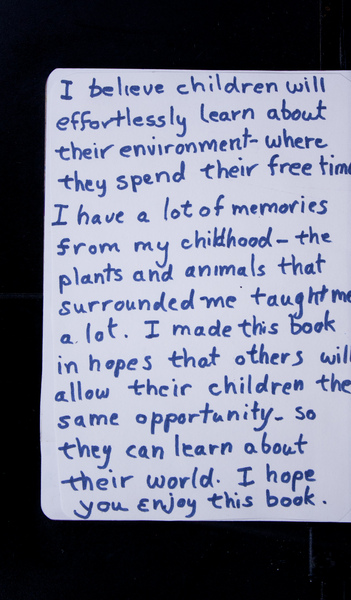 I believe children will
effortlessly learn about
their environment- where
they spend their free time
I have a lot of memories
from my childhood - the
plants and animals that
surrounded me taught me
a lot. I made this book
in hopes that others will
allow their children the
same opportunity - so
they can learn about
their world. I hope
you enjoy this book.